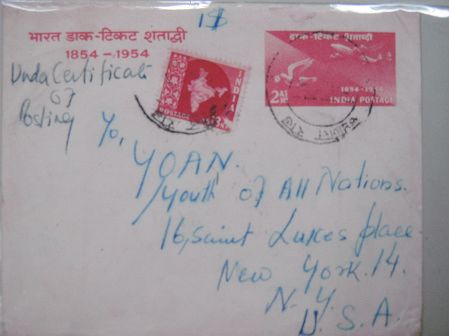 1$
भारत डाक-टिकट शताब्दी
1854-1954
Unda Certificate
of
Posting
डाक-टिकट शताब्दी
1854-1954
2 AS
INDIA POSTAGE
To,
YOAN.
Youth of All Nations.
16, saint Lukes place.
New York. 14.
N. Y.
U. S. A.